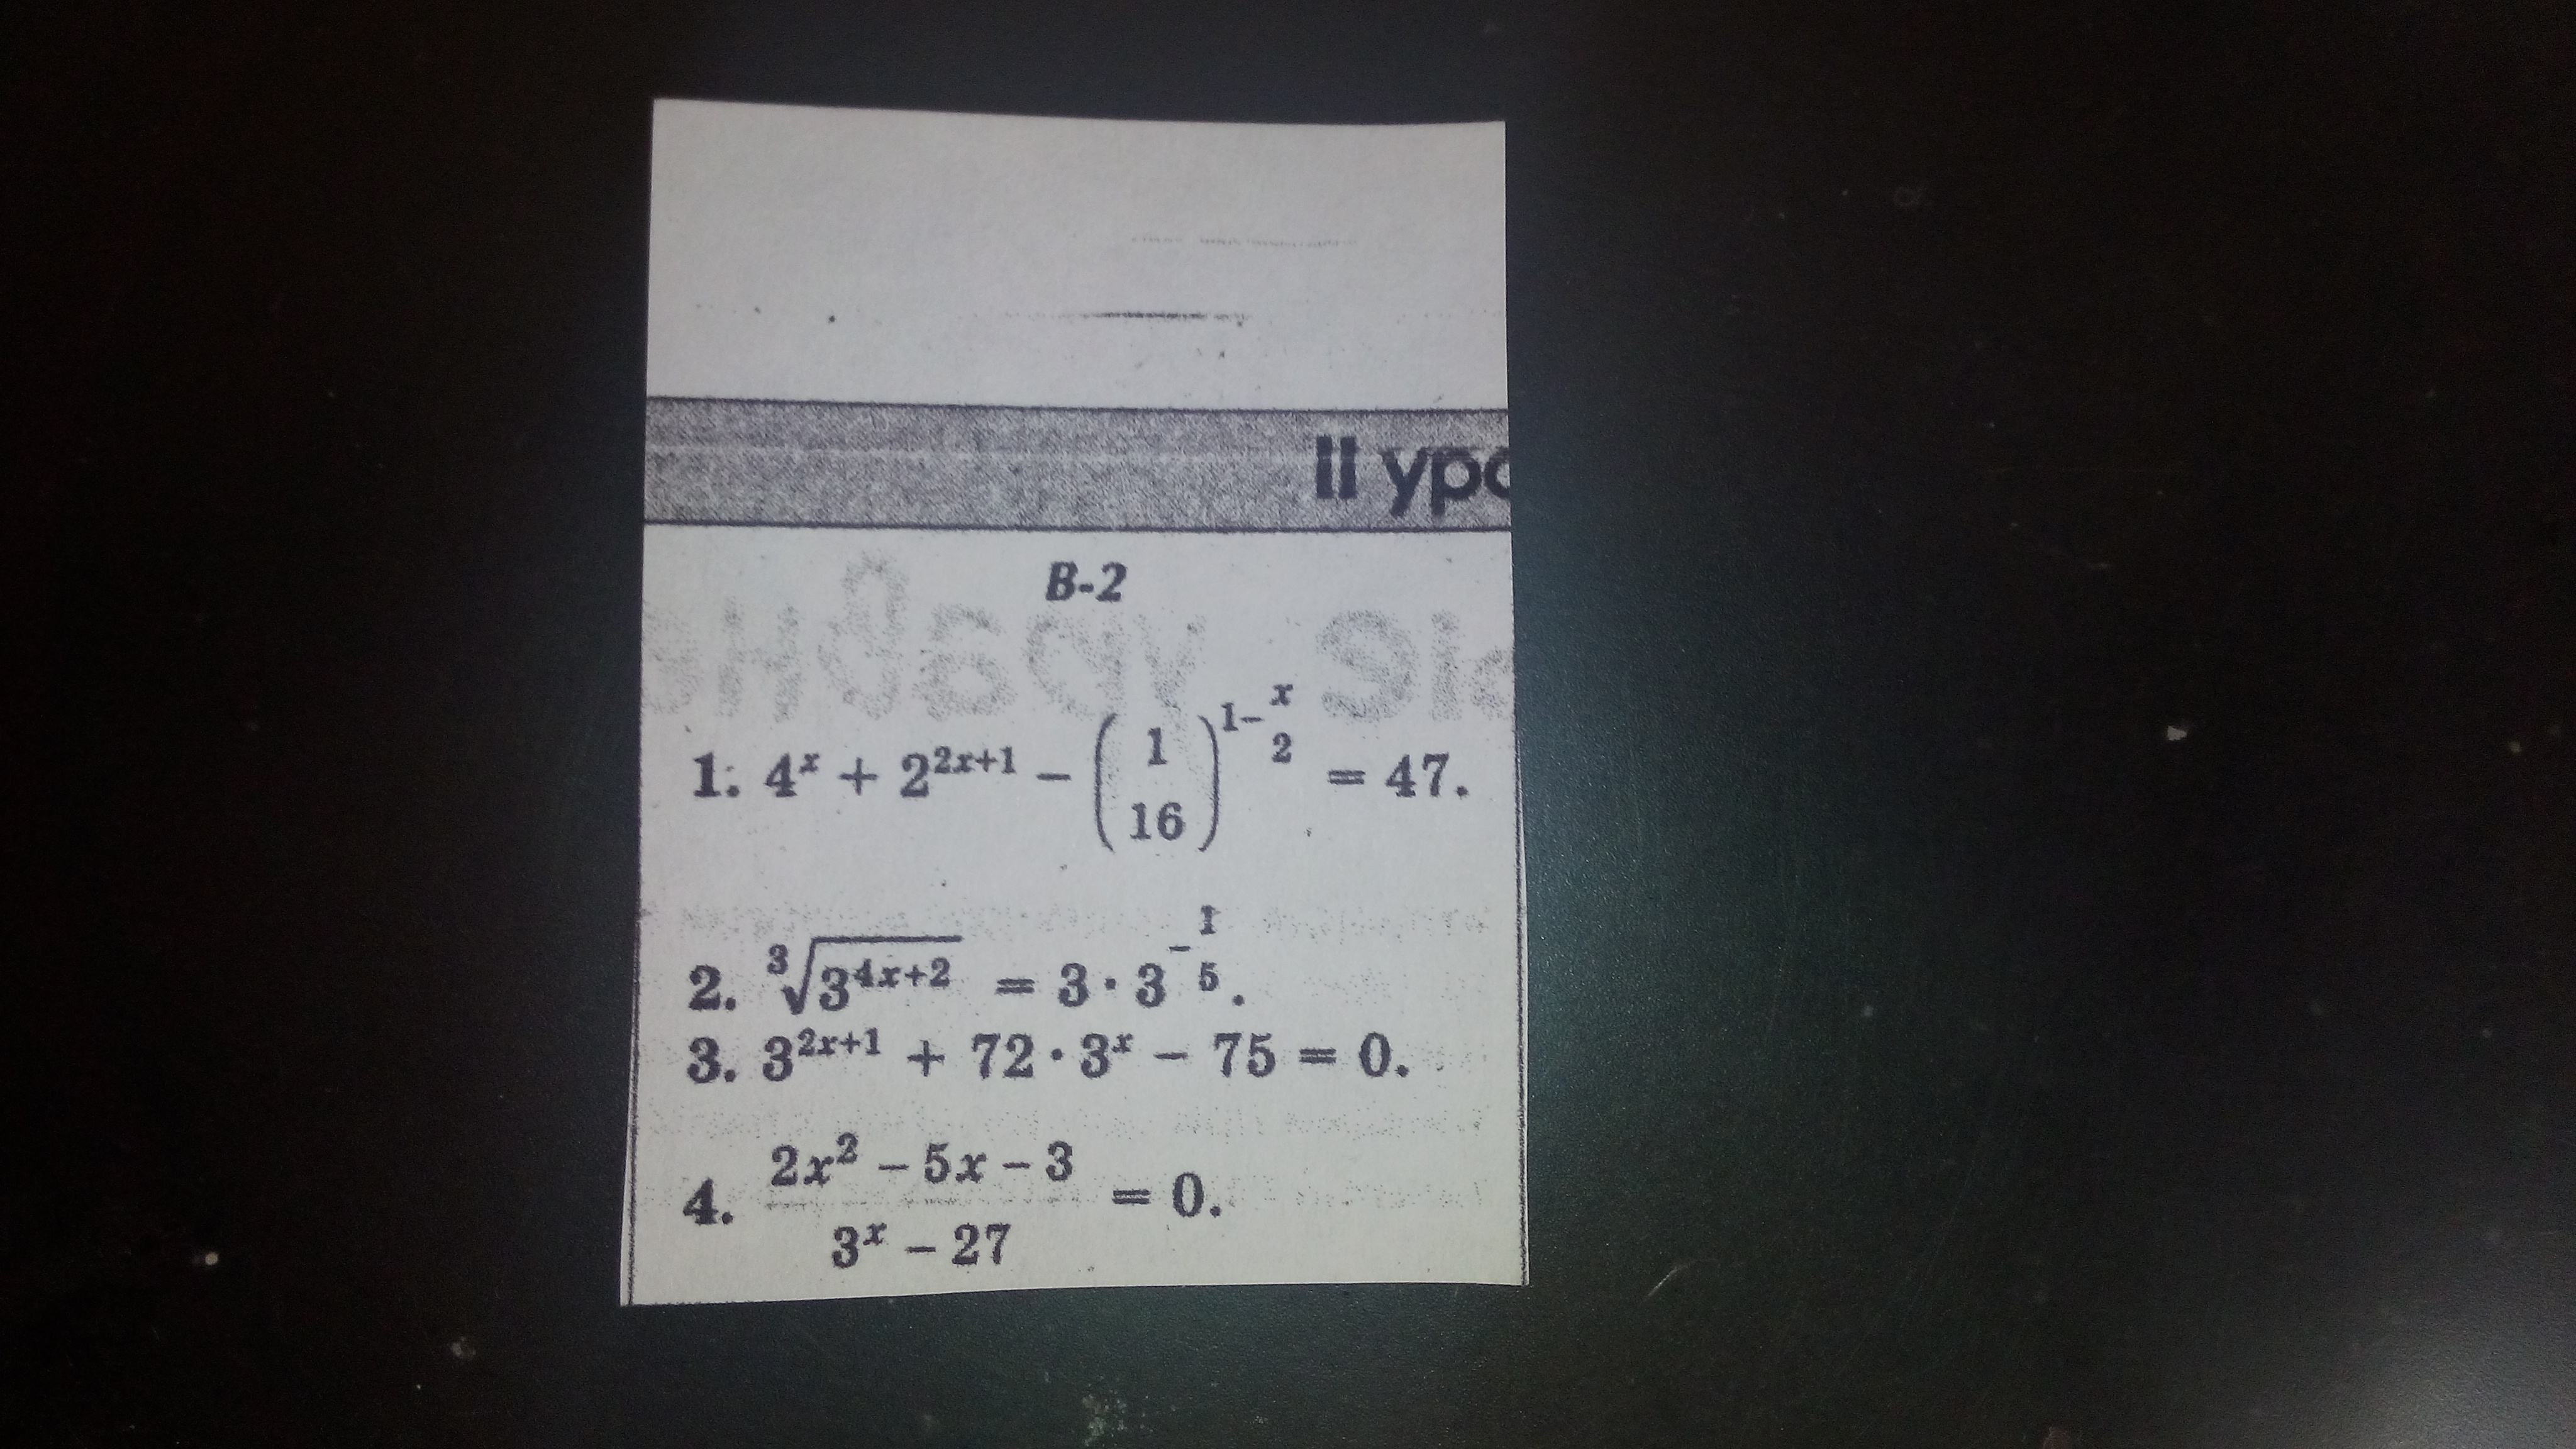 II уро
В-2
1. 4^x + 2^{2x+1} - (1/16)^{1-x/2} = 47.
2. ∛(3^{4x+2}) = 3 · 3^{-1/5}.
3. 3^{2x+1} + 72 · 3^x - 75 = 0.
4. (2x² - 5x - 3)/(3^x - 27) = 0.